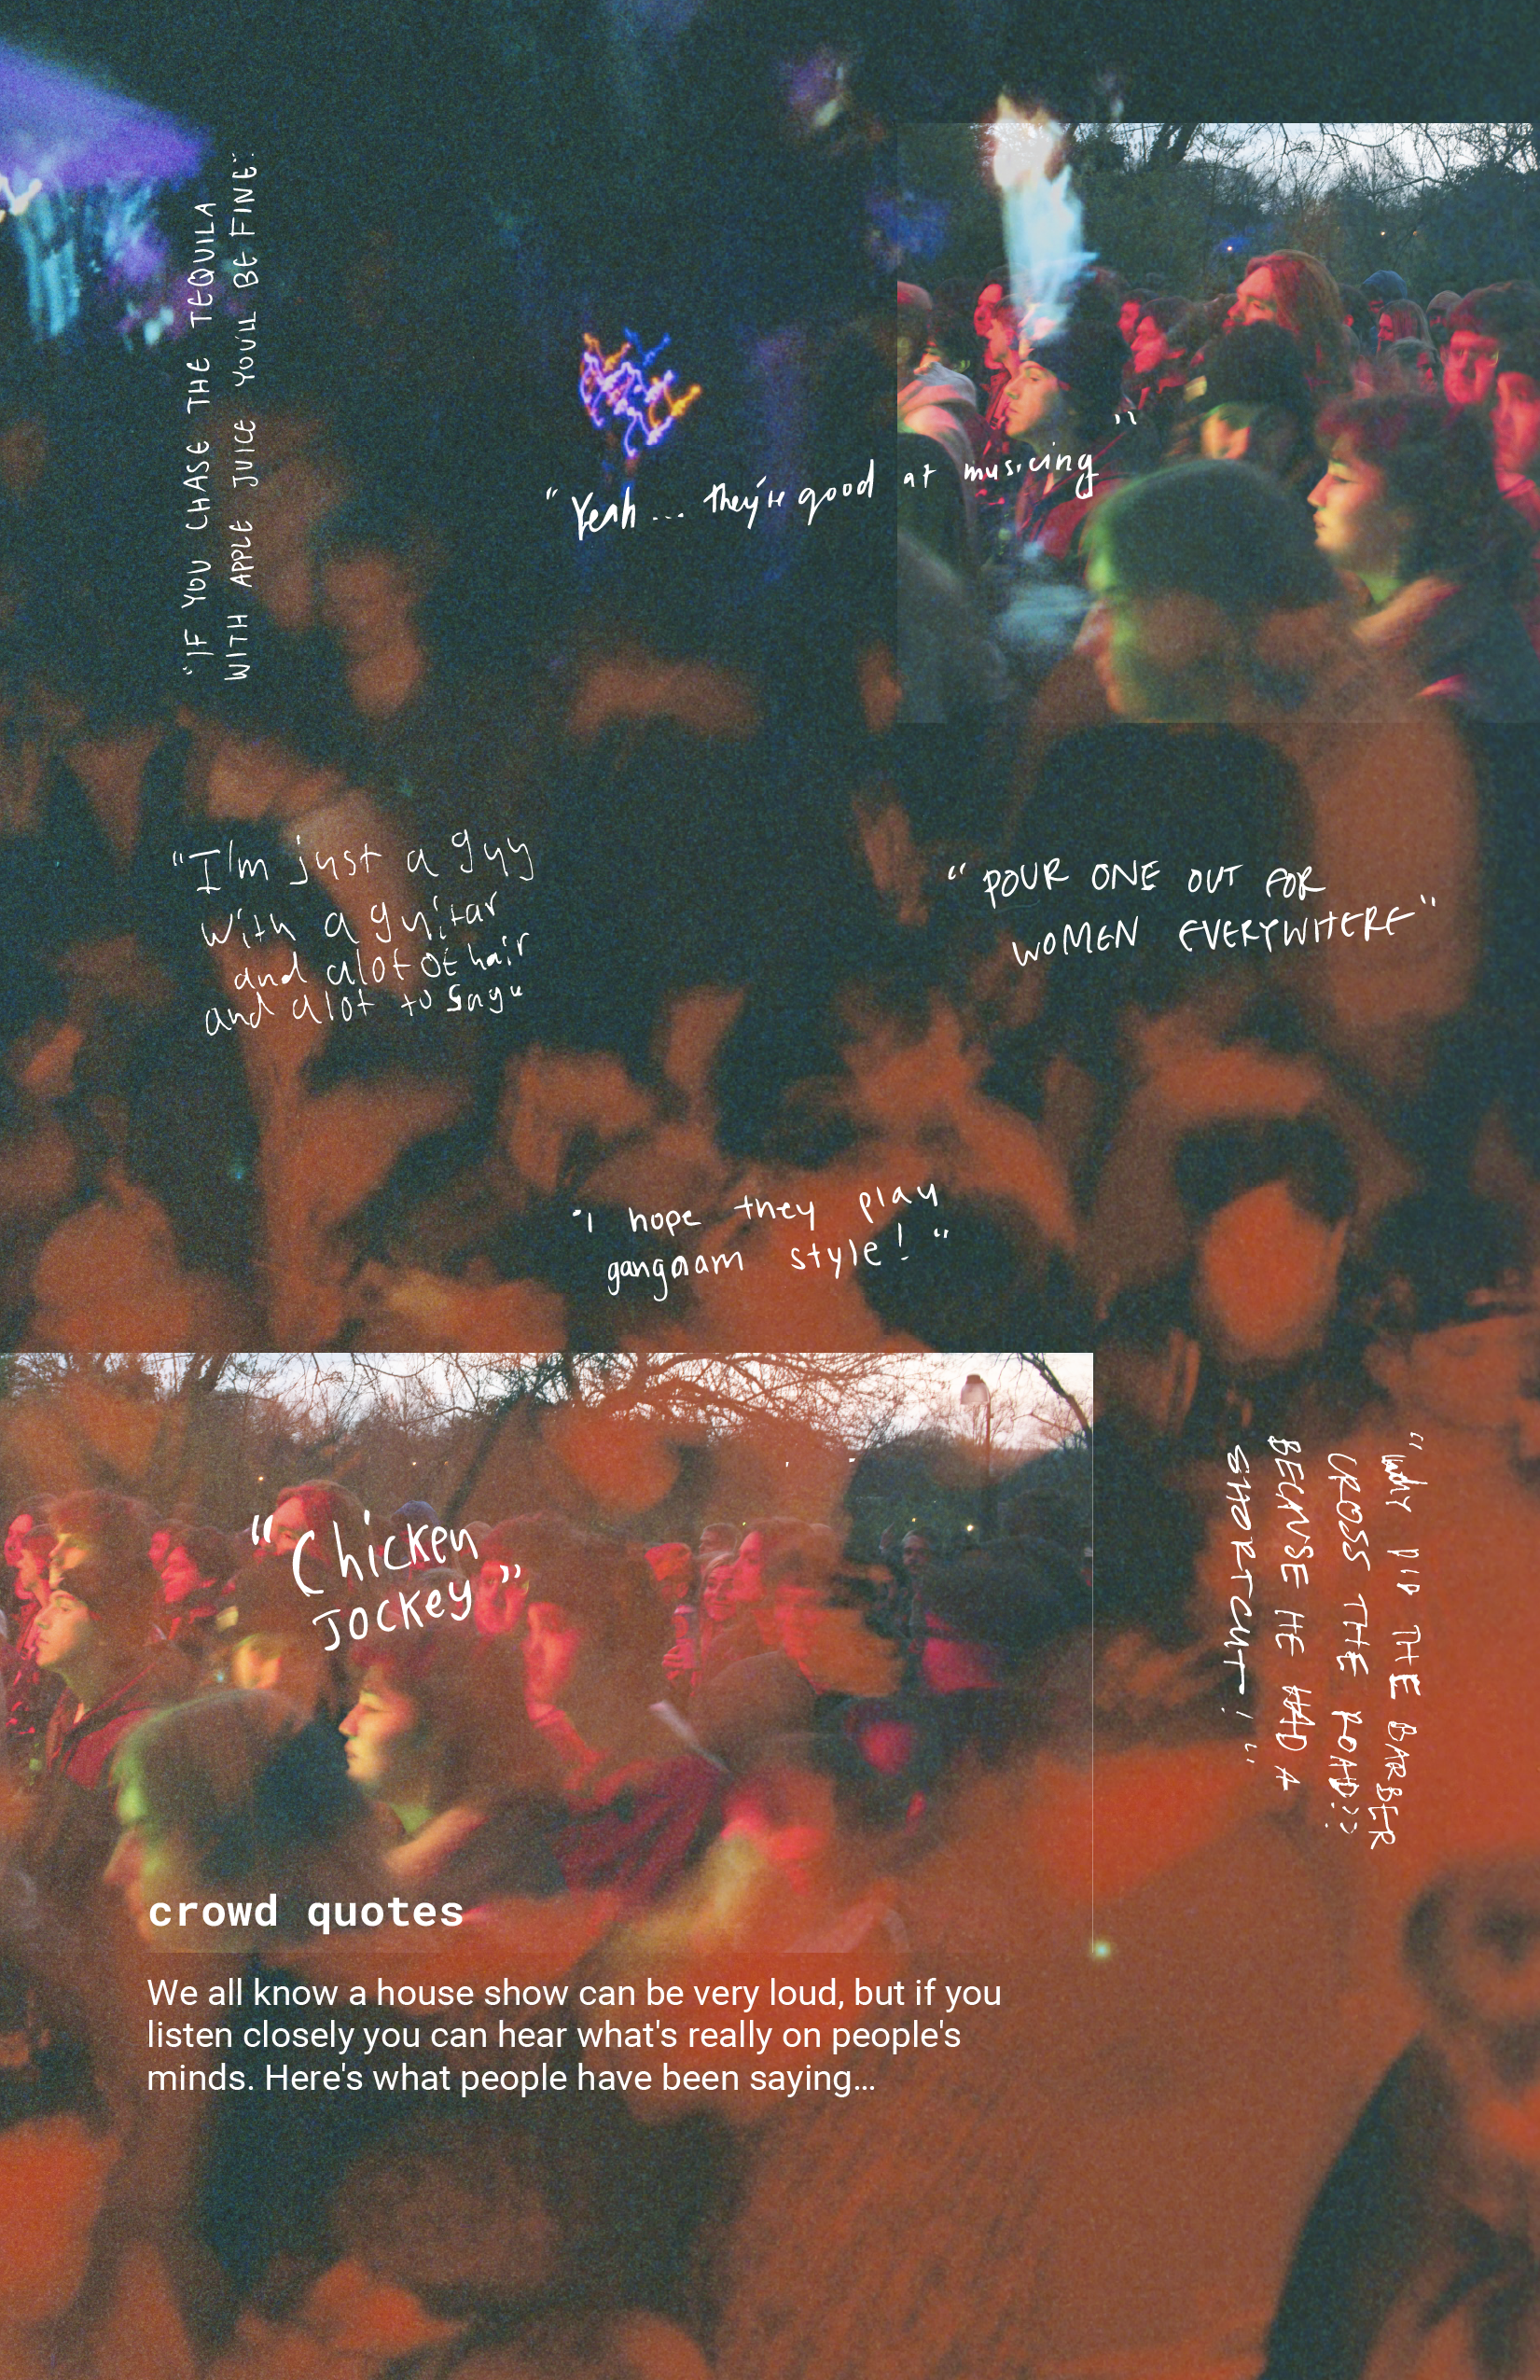 "IF YOU CHASE THE TEQUILA
WITH APPLE JUICE YOU'LL BE FINE"
"Yeah... they're good at musicing"
"I'm just a guy
with a guitar
and alot of hair
and alot to say"
"POUR ONE OUT FOR
WOMEN EVERYWHERE"
"I hope they play
gangnam style!"
"Chicken
Jockey"
"WHY DID THE BARBER
CROSS THE ROAD??
BECAUSE HE HAD A
SHORTCUT!"
crowd quotes
We all know a house show can be very loud, but if you
listen closely you can hear what's really on people's
minds. Here's what people have been saying...